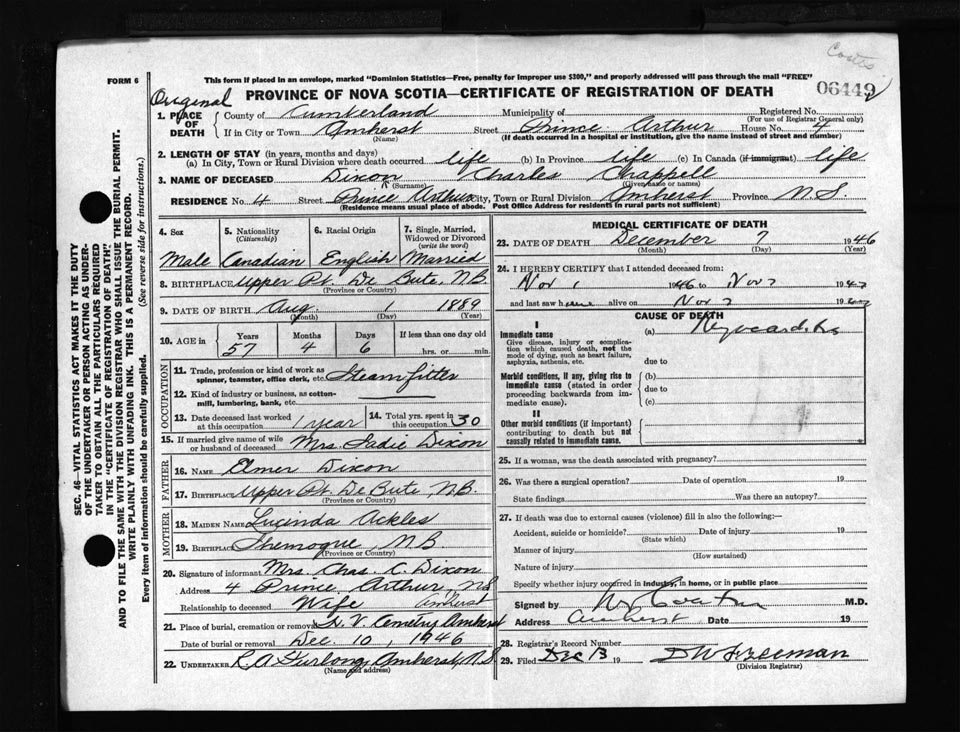 Coates
FORM 6
This form if placed in an envelope, marked "Dominion Statistics—Free, penalty for improper use $300," and properly addressed will pass through the mail "FREE"
06449
Original
PROVINCE OF NOVA SCOTIA—CERTIFICATE OF REGISTRATION OF DEATH
1. PLACE OF DEATH
County of Cumberland Municipality of Registered No.
(For use of Registrar General only)
If in City or Town Amherst Street Prince Arthur House No. 4
(Name) (If death occurred in a hospital or institution, give the name instead of street and number)
2. LENGTH OF STAY (in years, months and days)
(a) In City, Town or Rural Division where death occurred life (b) In Province life (c) In Canada (if immigrant) life
3. NAME OF DECEASED Dixon Charles Chappell
(Surname) (Given name or names)
RESIDENCE No. 4 Street Prince Arthur City, Town or Rural Division Amherst Province N.S.
(Residence means usual place of abode. Post Office Address for residents in rural parts not sufficient)
4. Sex Male
5. Nationality (Citizenship) Canadian
6. Racial Origin English
7. Single, Married, Widowed or Divorced (write the word) Married
8. BIRTHPLACE Upper Pt. De Bute, N.B.
(Province or Country)
9. DATE OF BIRTH Aug. 1889
(Month) (Day) (Year)
10. AGE in Years Months Days If less than one day old
57 4 6 hrs. or min.
OCCUPATION
11. Trade, profession or kind of work as
spinner, teamster, office clerk, etc. Steamfitter
12. Kind of industry or business, as cotton-
mill, lumbering, bank, etc.
13. Date deceased last worked at this occupation 1 year
14. Total yrs. spent in this occupation 30
15. If married give name of wife or husband of deceased Mrs. Sadie Dixon
FATHER
16. NAME Elmer Dixon
17. BIRTHPLACE Upper Pt. De Bute, N.B.
(Province or Country)
MOTHER
18. MAIDEN NAME Lucinda Ackles
19. BIRTHPLACE Shemogue, N.B.
(Province or Country)
20. Signature of informant Mrs. Chas. C. Dixon
Address 4 Prince Arthur, N.S.
Amherst
Relationship to deceased Wife
21. Place of burial, cremation or removal Cemetery Amherst
Date of burial or removal Dec. 10, 1946
22. UNDERTAKER R.A. Furlong, Amherst, N.S.
(Name and address)
MEDICAL CERTIFICATE OF DEATH
23. DATE OF DEATH December 7 1946
(Month) (Day) (Year)
24. I HEREBY CERTIFY that I attended deceased from:
Nov 1 1946 to Nov 7 19
and last saw h alive on Nov 7 19
CAUSE OF DEATH
I
Immediate cause
Give disease, injury or complica-
tion which caused death, not the
mode of dying, such as heart failure,
asphyxia, asthenia, etc.
(a) Myocarditis
due to
Morbid conditions, if any, giving rise to
immediate cause (stated in order
proceeding backwards from im-
mediate cause).
(b)
due to
(c)
II
Other morbid conditions (if important)
contributing to death but not
causally related to immediate cause.
25. If a woman, was the death associated with pregnancy?
26. Was there a surgical operation? Date of operation 19
State findings Was there an autopsy?
27. If death was due to external causes (violence) fill in also the following:—
Accident, suicide or homicide? Date of injury 19
(State which)
Manner of injury
(How sustained)
Nature of injury
Specify whether injury occurred in industry, in home, or in public place
Signed by M.D.
Address Amherst Date 19
28. Registrar's Record Number
29. Filed Dec 13 19 D W Freeman
(Division Registrar)
SEC. 46—VITAL STATISTICS ACT MAKES IT THE DUTY
OF THE UNDERTAKER OR PERSON ACTING AS UNDER-
TAKER TO OBTAIN ALL THE PARTICULARS REQUIRED
IN THE "CERTIFICATE OF REGISTRATION OF DEATH"
AND TO FILE THE SAME WITH THE DIVISION REGISTRAR WHO SHALL ISSUE THE BURIAL PERMIT.
WRITE PLAINLY WITH UNFADING INK. THIS IS A PERMANENT RECORD.
Every item of information should be carefully supplied. (See reverse side for instructions.)